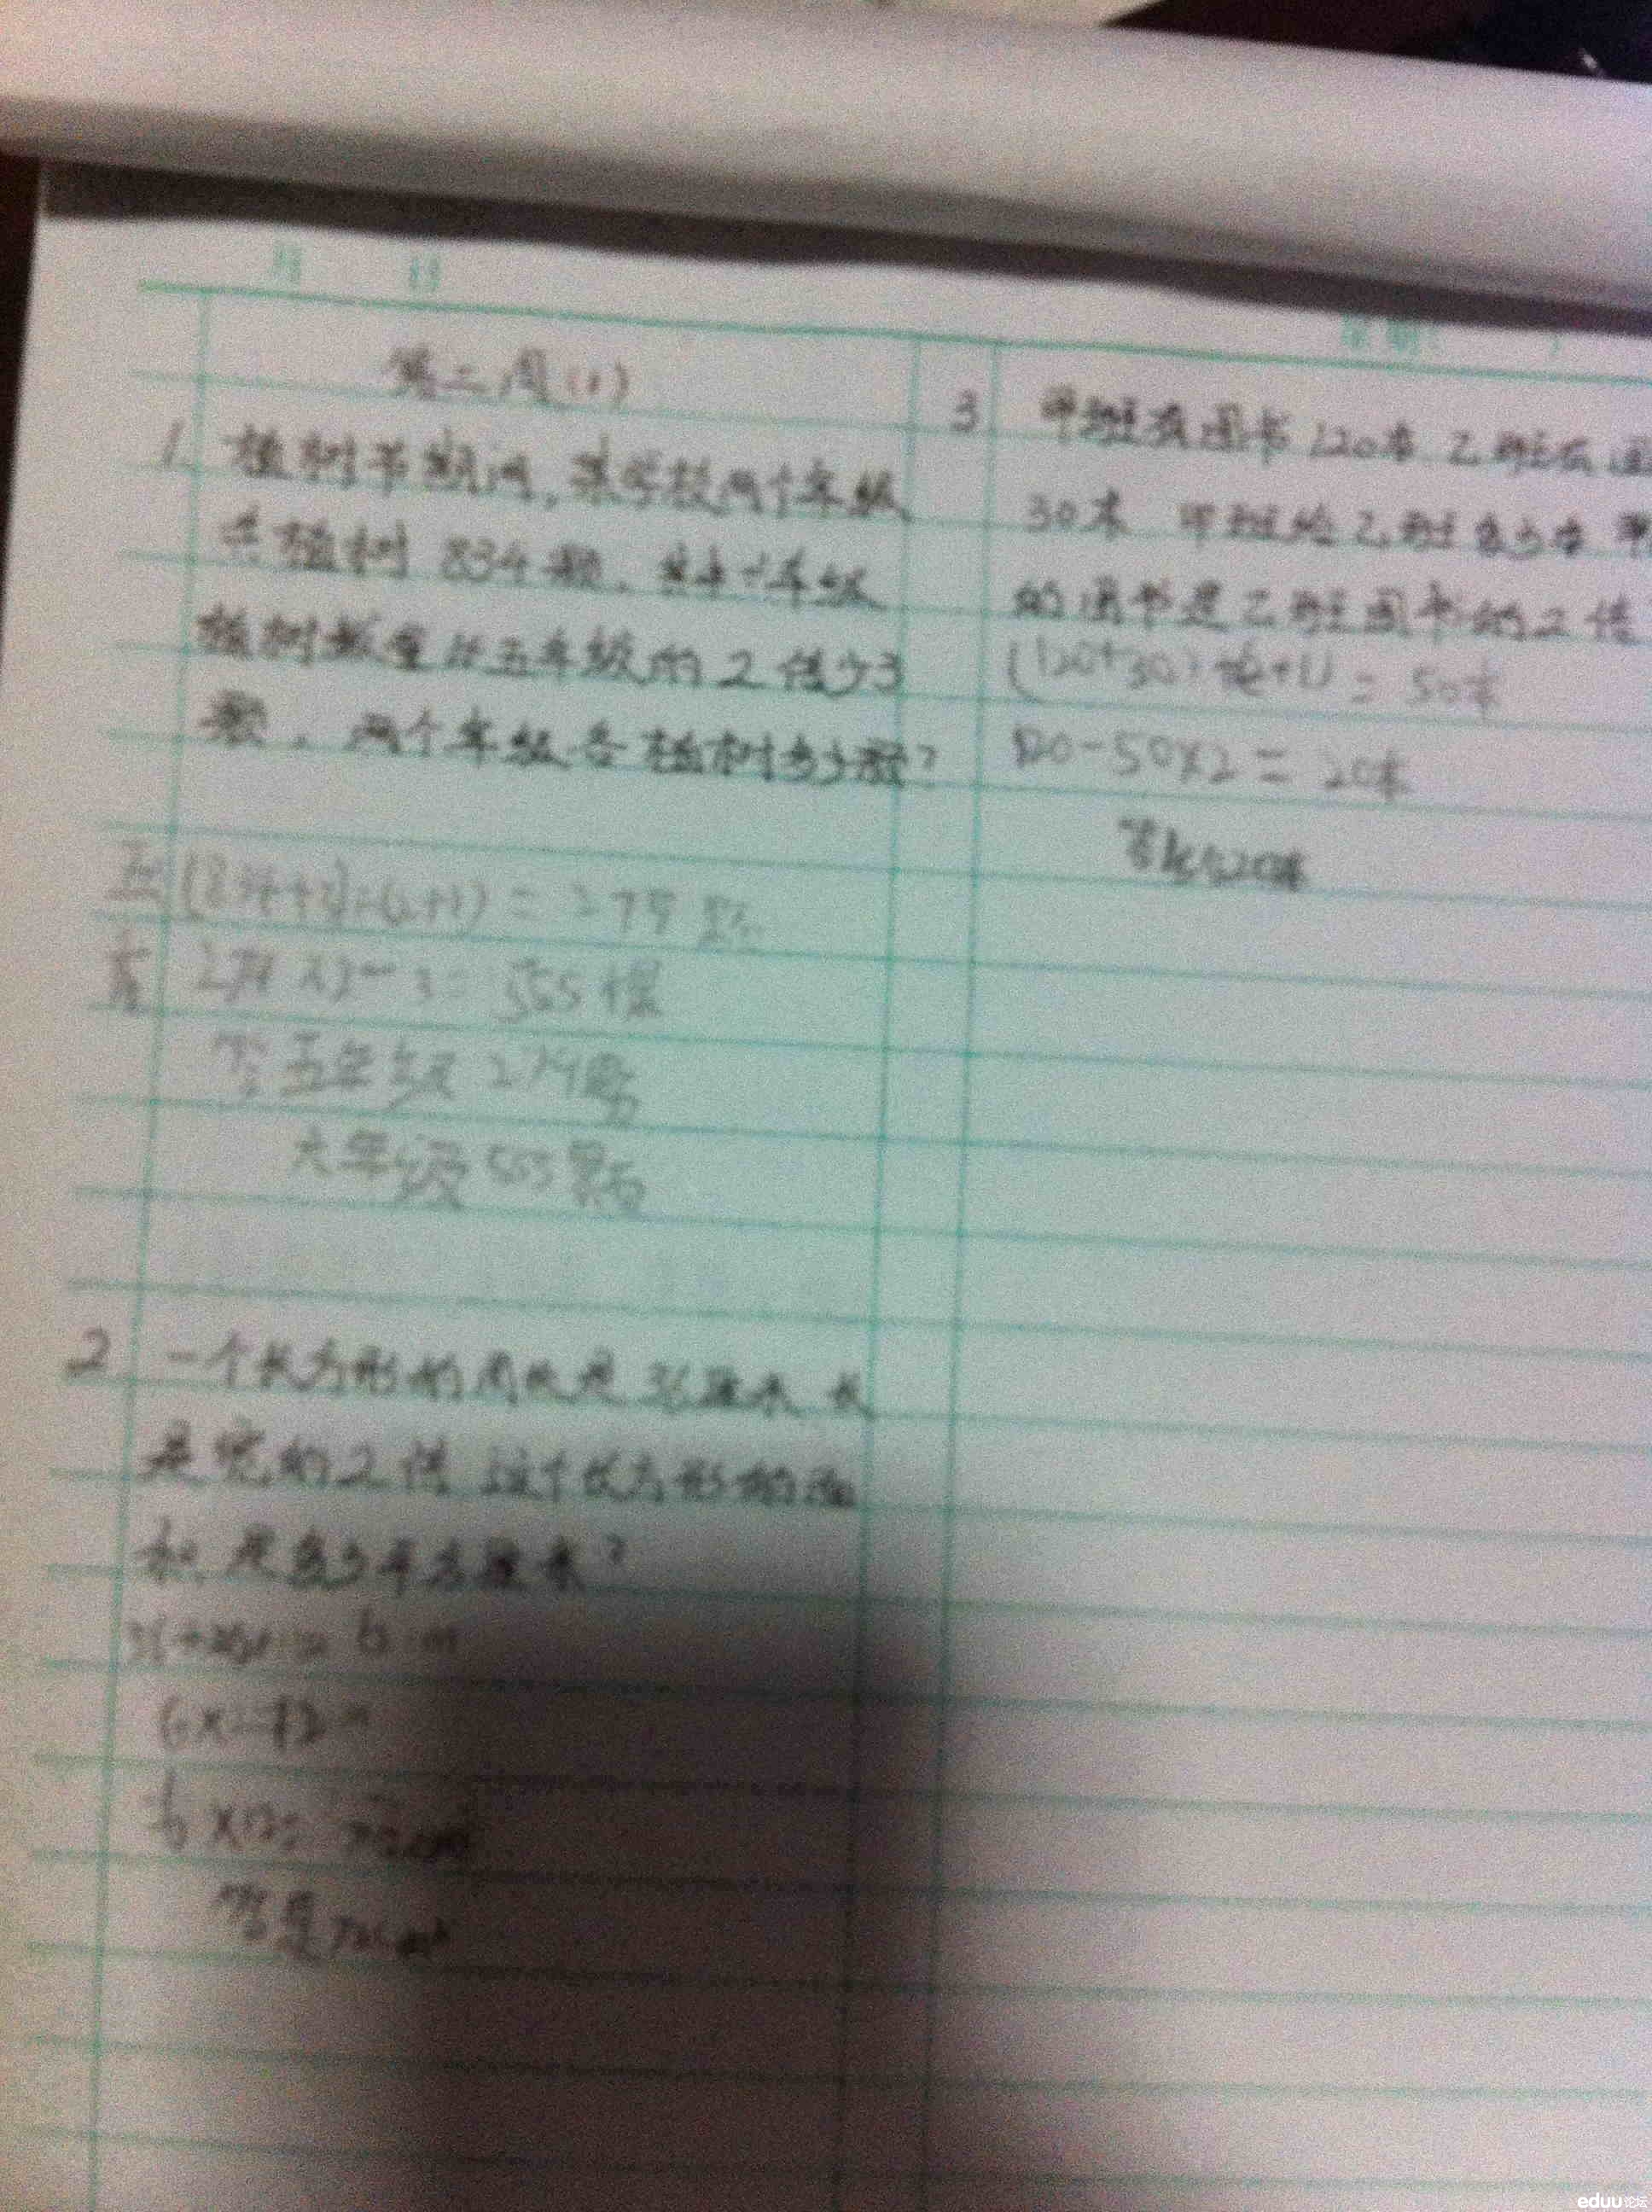 月 日
星期
第二周(1)
1. 植树节期间,某学校两个年级
共植树 834棵, 其中六年级
植树数量比五年级的2倍少3
棵, 两个年级各植树多少棵?
五(834+3)÷(2+1) = 279
279×2-3=555棵
答:五年级279
六年级555
2 一个长方形的周长是36厘米 长
是宽的2倍 这个长方形的面
积是多少平方厘米?
6×2=12
6×12=72cm²
答:是72cm²
3 甲班有图书120本 乙班有图
30本 甲班给乙班多少本 甲
的图书是乙班图书的2倍
(120+30)÷(2+1) = 50本
120-50×2=20本
答:20本
eduu